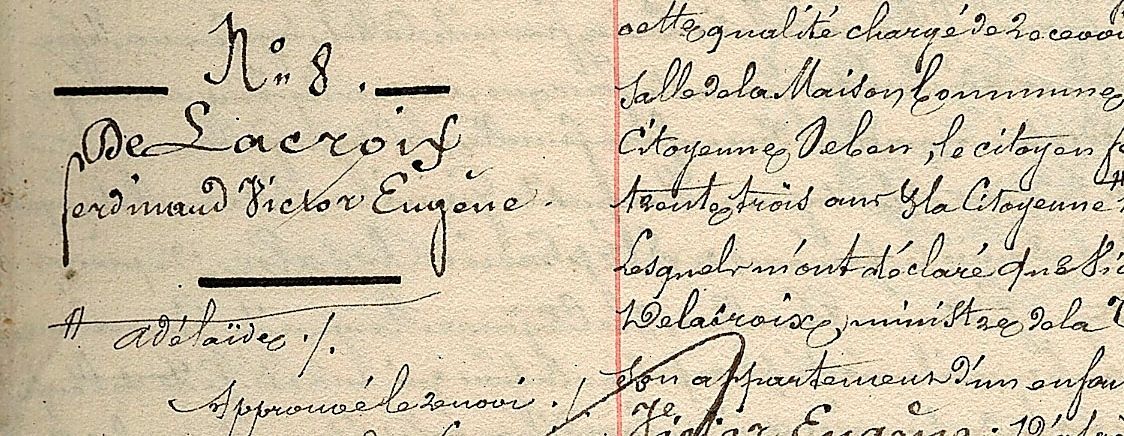 N° 8.
De Lacroix
ferdinand Victor Eugène.
# adélaïde ./.
Approuvé le renvoi ./.
cette qualité chargé de recevoi
salle de la Maison Commune
Citoyenne Deben, le citoyen
trente trois ans & la Citoyenne #
Lesquels m'ont déclaré que
Delacroix, ministre de la
son appartement d'un enfan
Victor Eugène :